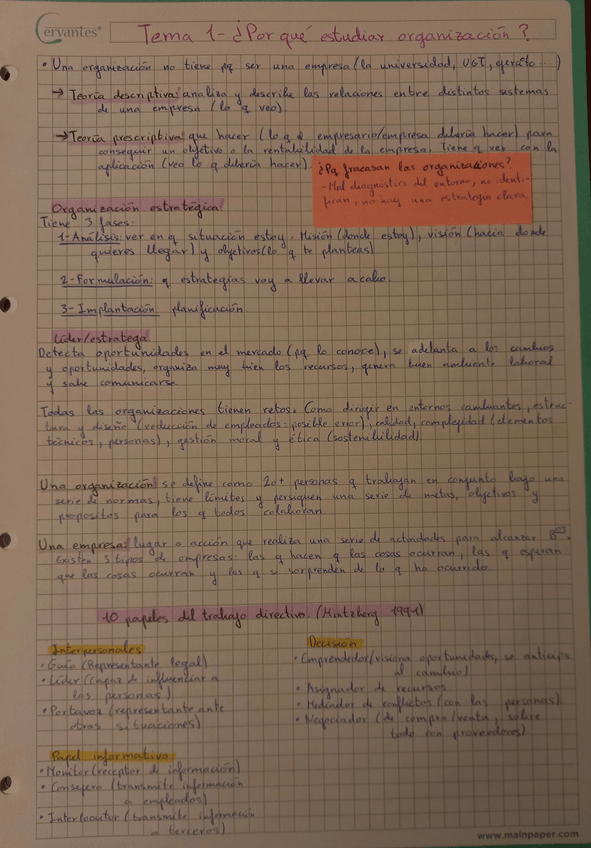 Cervantes®
Tema 1- ¿Por qué estudiar organización?
• Una organización no tiene pq ser una empresa (la universidad, UGT, ejército ...)
→ Teoría descriptiva: analiza y describe las relaciones entre distintos sistemas
de una empresa (lo q veo).
→ Teoría prescriptiva: que hacer (lo q el empresario/empresa debería hacer) para
conseguir un objetivo o la rentabilidad de la empresa. Tiene q ver con la
aplicación (veo lo q debería hacer).
¿Pq fracasan las organizaciones?
- Mal diagnóstico del entorno, no ident-
ifican, no hay una estrategia clara
Organización estratégica:
Tiene 3 fases:
1-Análisis: ver en q situación estoy. Misión (donde estoy), visión (hacia donde
quieres llegar) y objetivos (lo q te planteas)
2-Formulación: q estrategias voy a llevar a cabo.
3-Implantación: planificación
Líder/estratega
Detecta oportunidades en el mercado (pq lo conoce), se adelanta a los cambios
y oportunidades, organiza muy bien los recursos, genera buen ambiente laboral
y sabe comunicarse
Todas las organizaciones tienen retos. Como dirigir en entornos cambiantes, estruc-
tura y diseño (reducción de empleados: posible error), calidad, complejidad (elementos
técnicos, personas), gestión moral y ética (sostenibilidad)
Una organización: se define como 2o+ personas q trabajan en conjunto bajo una
serie de normas, tiene límites y persiguen una serie de metas, objetivos y
propósitos para los q todos colaboran
Una empresa: lugar o acción que realiza una serie de actividades para alcanzar
Existen 3 tipos de empresas: las q hacen q las cosas ocurran, las q esperan
que las cosas ocurran y las q se sorprenden de lo q ha ocurrido
10 papeles del trabajo directivo. (Mintzberg 1991)
Interpersonales
• Guía (Representante legal)
• Líder (capaz de influenciar a
las personas)
• Portavoz (representante ante
otras situaciones)
Papel informativo
• Monitor (receptor de información)
• Consejero (transmite información
a empleados)
• Interlocutor (transmite información
a terceros)
Decisión
• Emprendedor (visiona oportunidades, se anticipa
al cambio)
• Asignador de recursos
• Mediador de conflictos (con las personas)
• Negociador (de compra/venta, sobre
todo con proveedores)
www.mainpaper.com